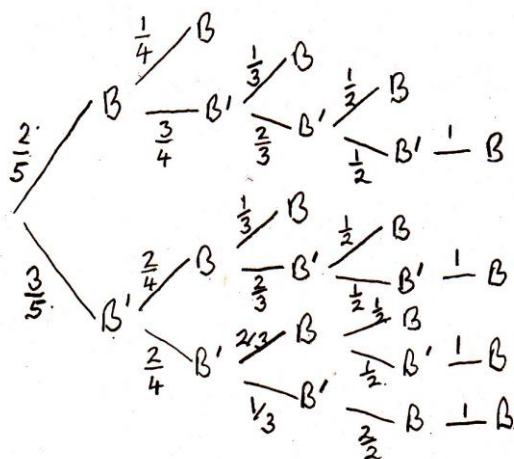 1/4 B
2/5 B 3/4 B' 1/3 B
2/3 B' 1/2 B
1/2 B' 1 B
3/5 B' 2/4 B 1/3 B
2/3 B' 1/2 B
1/2 B' 1 B
2/4 B' 2/3 B 1/2 B
1/2 B' 1 B
1/3 B' 2/2 B 1 B